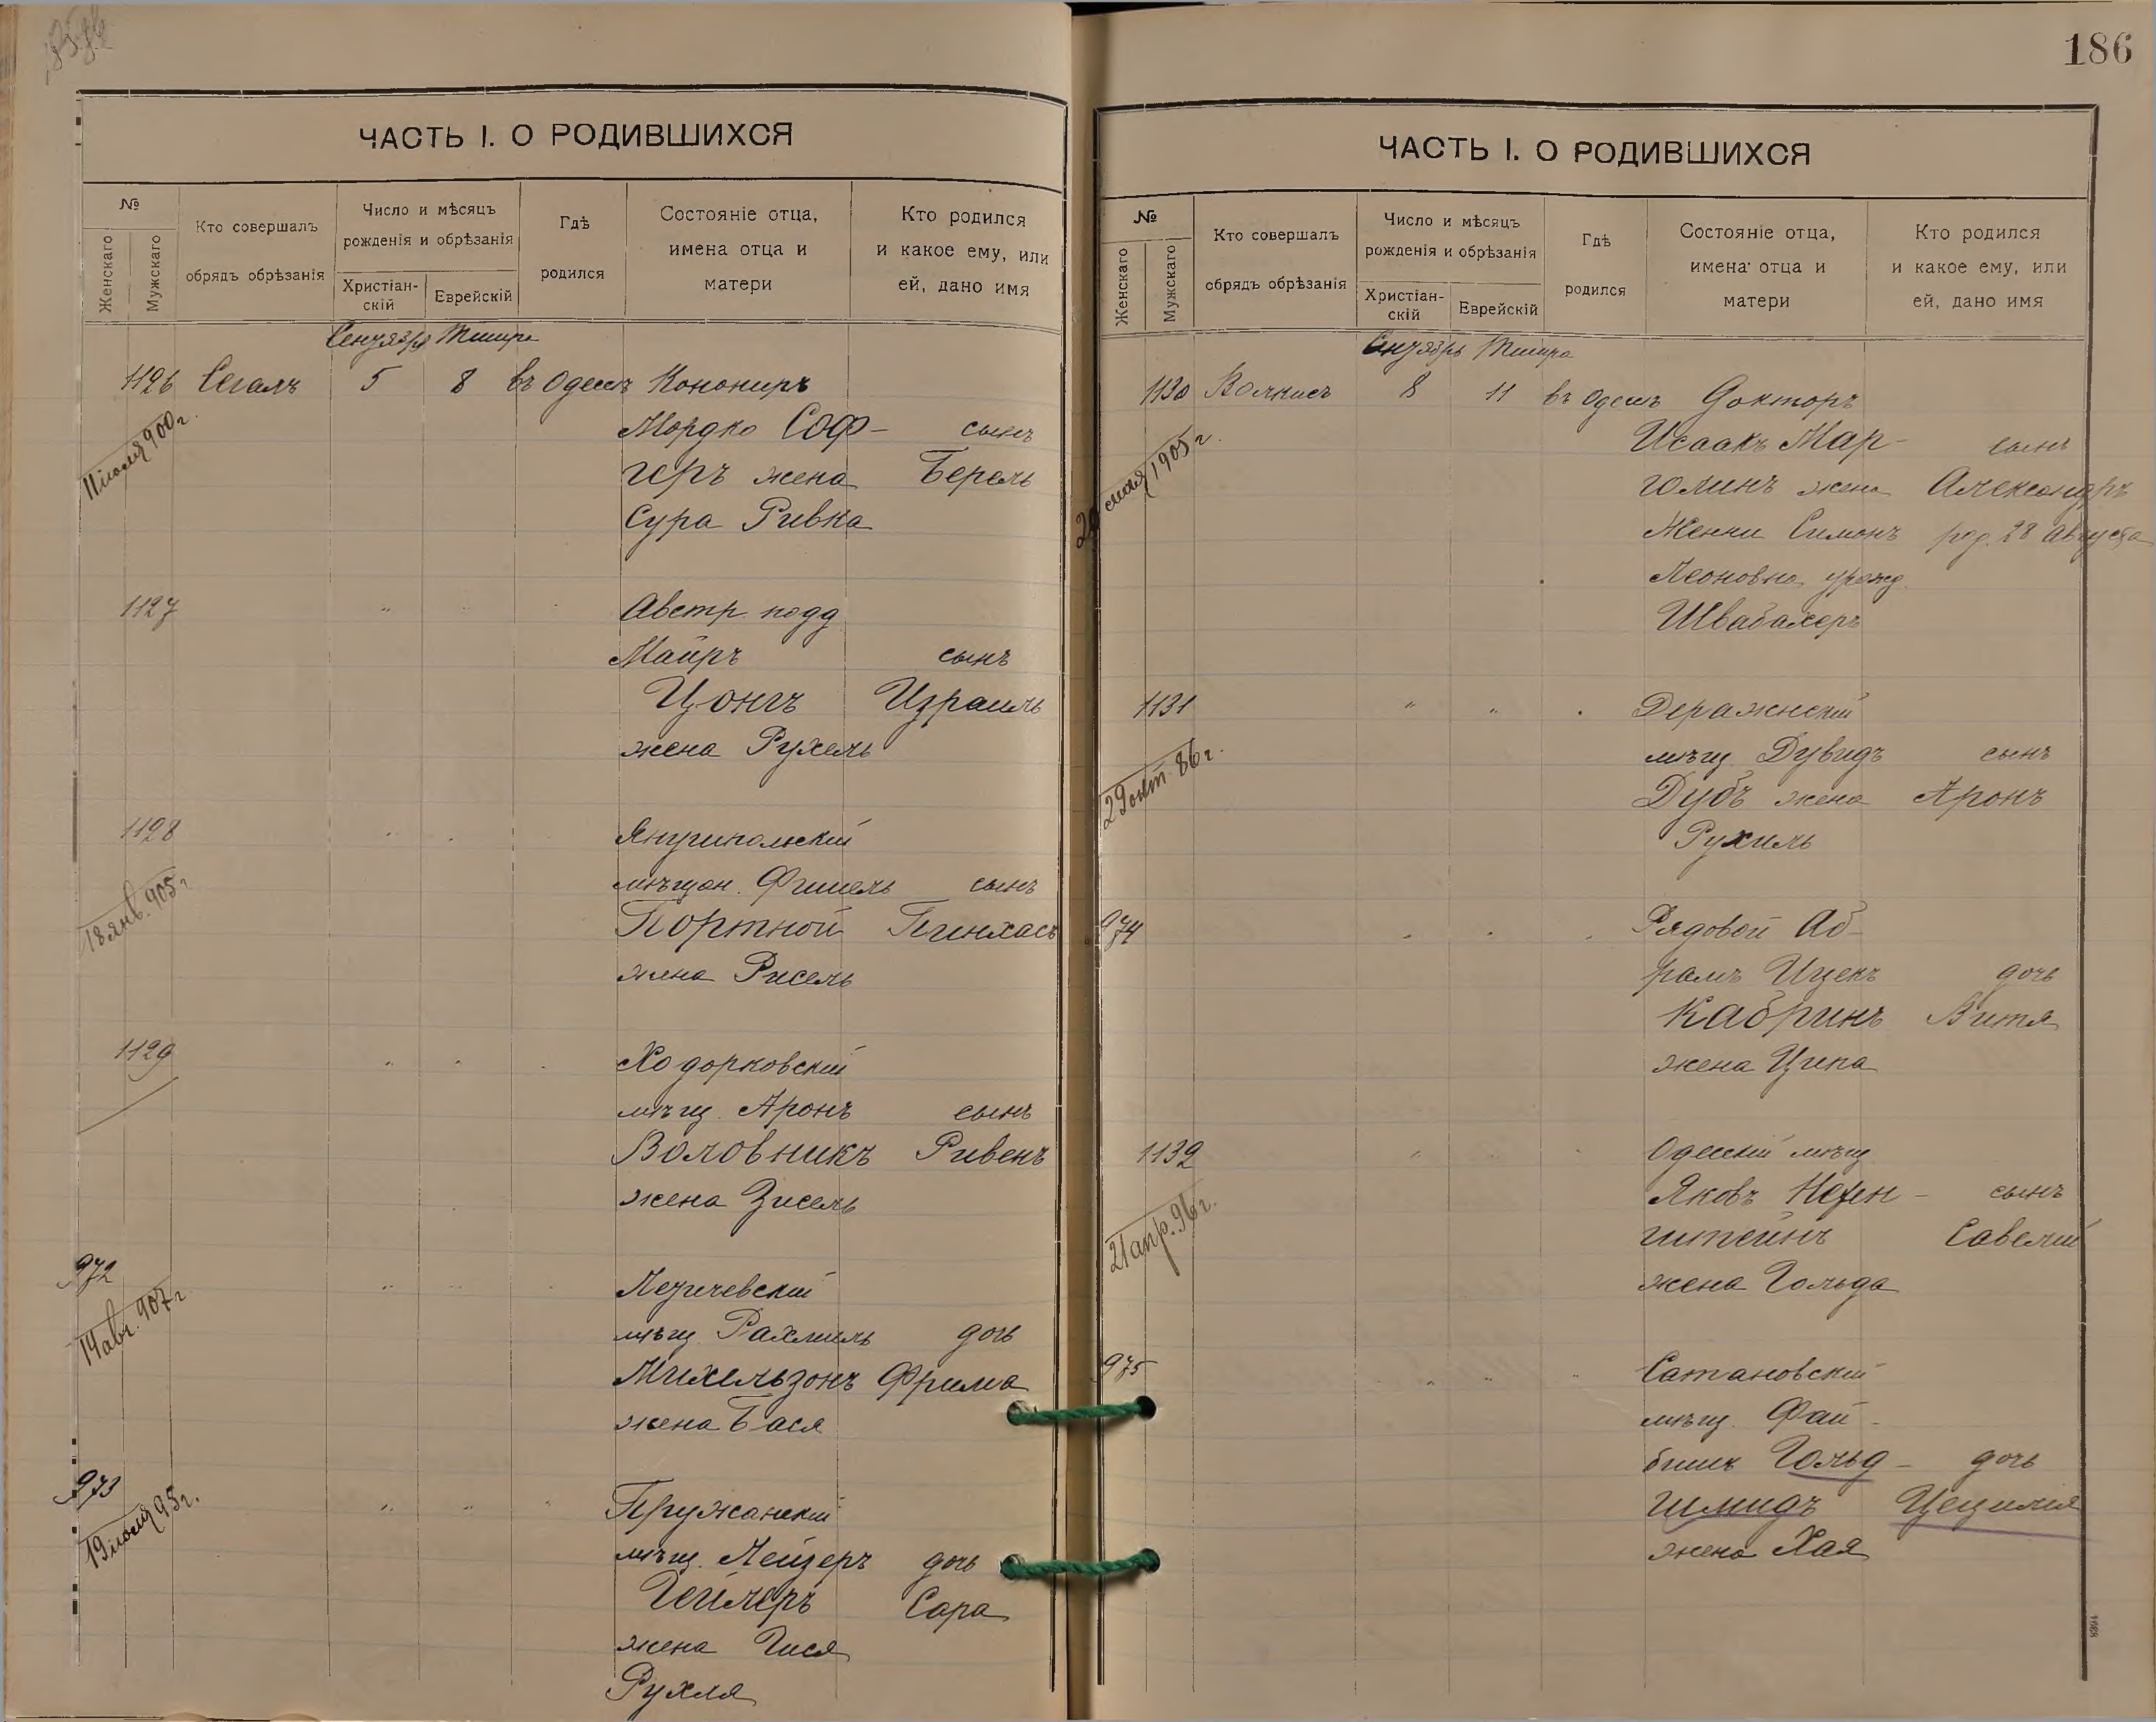 186
ЧАСТЬ I. О РОДИВШИХСЯ
№
Женскаго
Мужскаго
Кто совершалъ
обрядъ обрѣзанія
Число и мѣсяцъ
рожденія и обрѣзанія
Христіан-
скій
Еврейскій
Гдѣ
родился
Состояніе отца,
имена отца и
матери
Кто родился
и какое ему, или
ей, дано имя
Сентябрь Тишри
1126 Сегалъ 5 8 въ Одессѣ Канониръ
11 іюля 900 г.
Мордко Соф- сынъ
геръ жена Берель
Сура Ривка
1127 Австр. подд
Маиръ сынъ
Цонгъ Израиль
жена Рухель
1128 Янушпольскій
18 янв. 905 г.
мѣщан. Фишель сынъ
Портной Пинхасъ
жена Рисель
1129 Ходорковскій
мѣщ. Аронъ сынъ
Воловникъ Ривенъ
жена Зисель
972 Летичевскій
14 авг. 907 г
мѣщ. Рахмиль дочь
Михельзонъ Фрима
жена Бася
973 Пружанскій
19 іюля 95 г.
мѣщ. Лейзеръ дочь
Гейлеръ Сара
жена Гися
Рухля
ЧАСТЬ I. О РОДИВШИХСЯ
№
Женскаго
Мужскаго
Кто совершалъ
обрядъ обрѣзанія
Число и мѣсяцъ
рожденія и обрѣзанія
Христіан-
скій
Еврейскій
Гдѣ
родился
Состояніе отца,
имена отца и
матери
Кто родился
и какое ему, или
ей, дано имя
Сентябрь Тишри
1130 8 11 въ Одессѣ Докторъ
мая 1905 г.
Исаакъ Мар- сынъ
голинъ жена Александръ
Женни Симонъ род. 28 августа
Леоновна урожд.
Швабахеръ
1131 Деражнскій
29 окт. 86 г.
мѣщ. Дувидъ сынъ
Дубъ жена Аронъ
Рухиль
974 Рядовой Аб-
рамъ Ицекъ дочь
Кабринъ Витя
жена Ципа
1132 Одесскій мѣщ
21 апр. 96 г.
Яковъ сынъ
штейнъ Савелій
жена Гольда
975 Сатановскій
мѣщ. Фай-
бишъ Гольд- дочь
шмидъ Цецилія
жена Хая